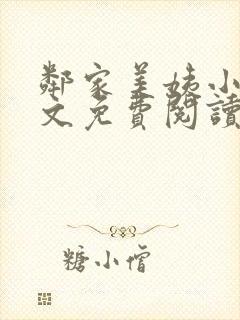 鄰家美姨小
文免費閱讀
糖小僧